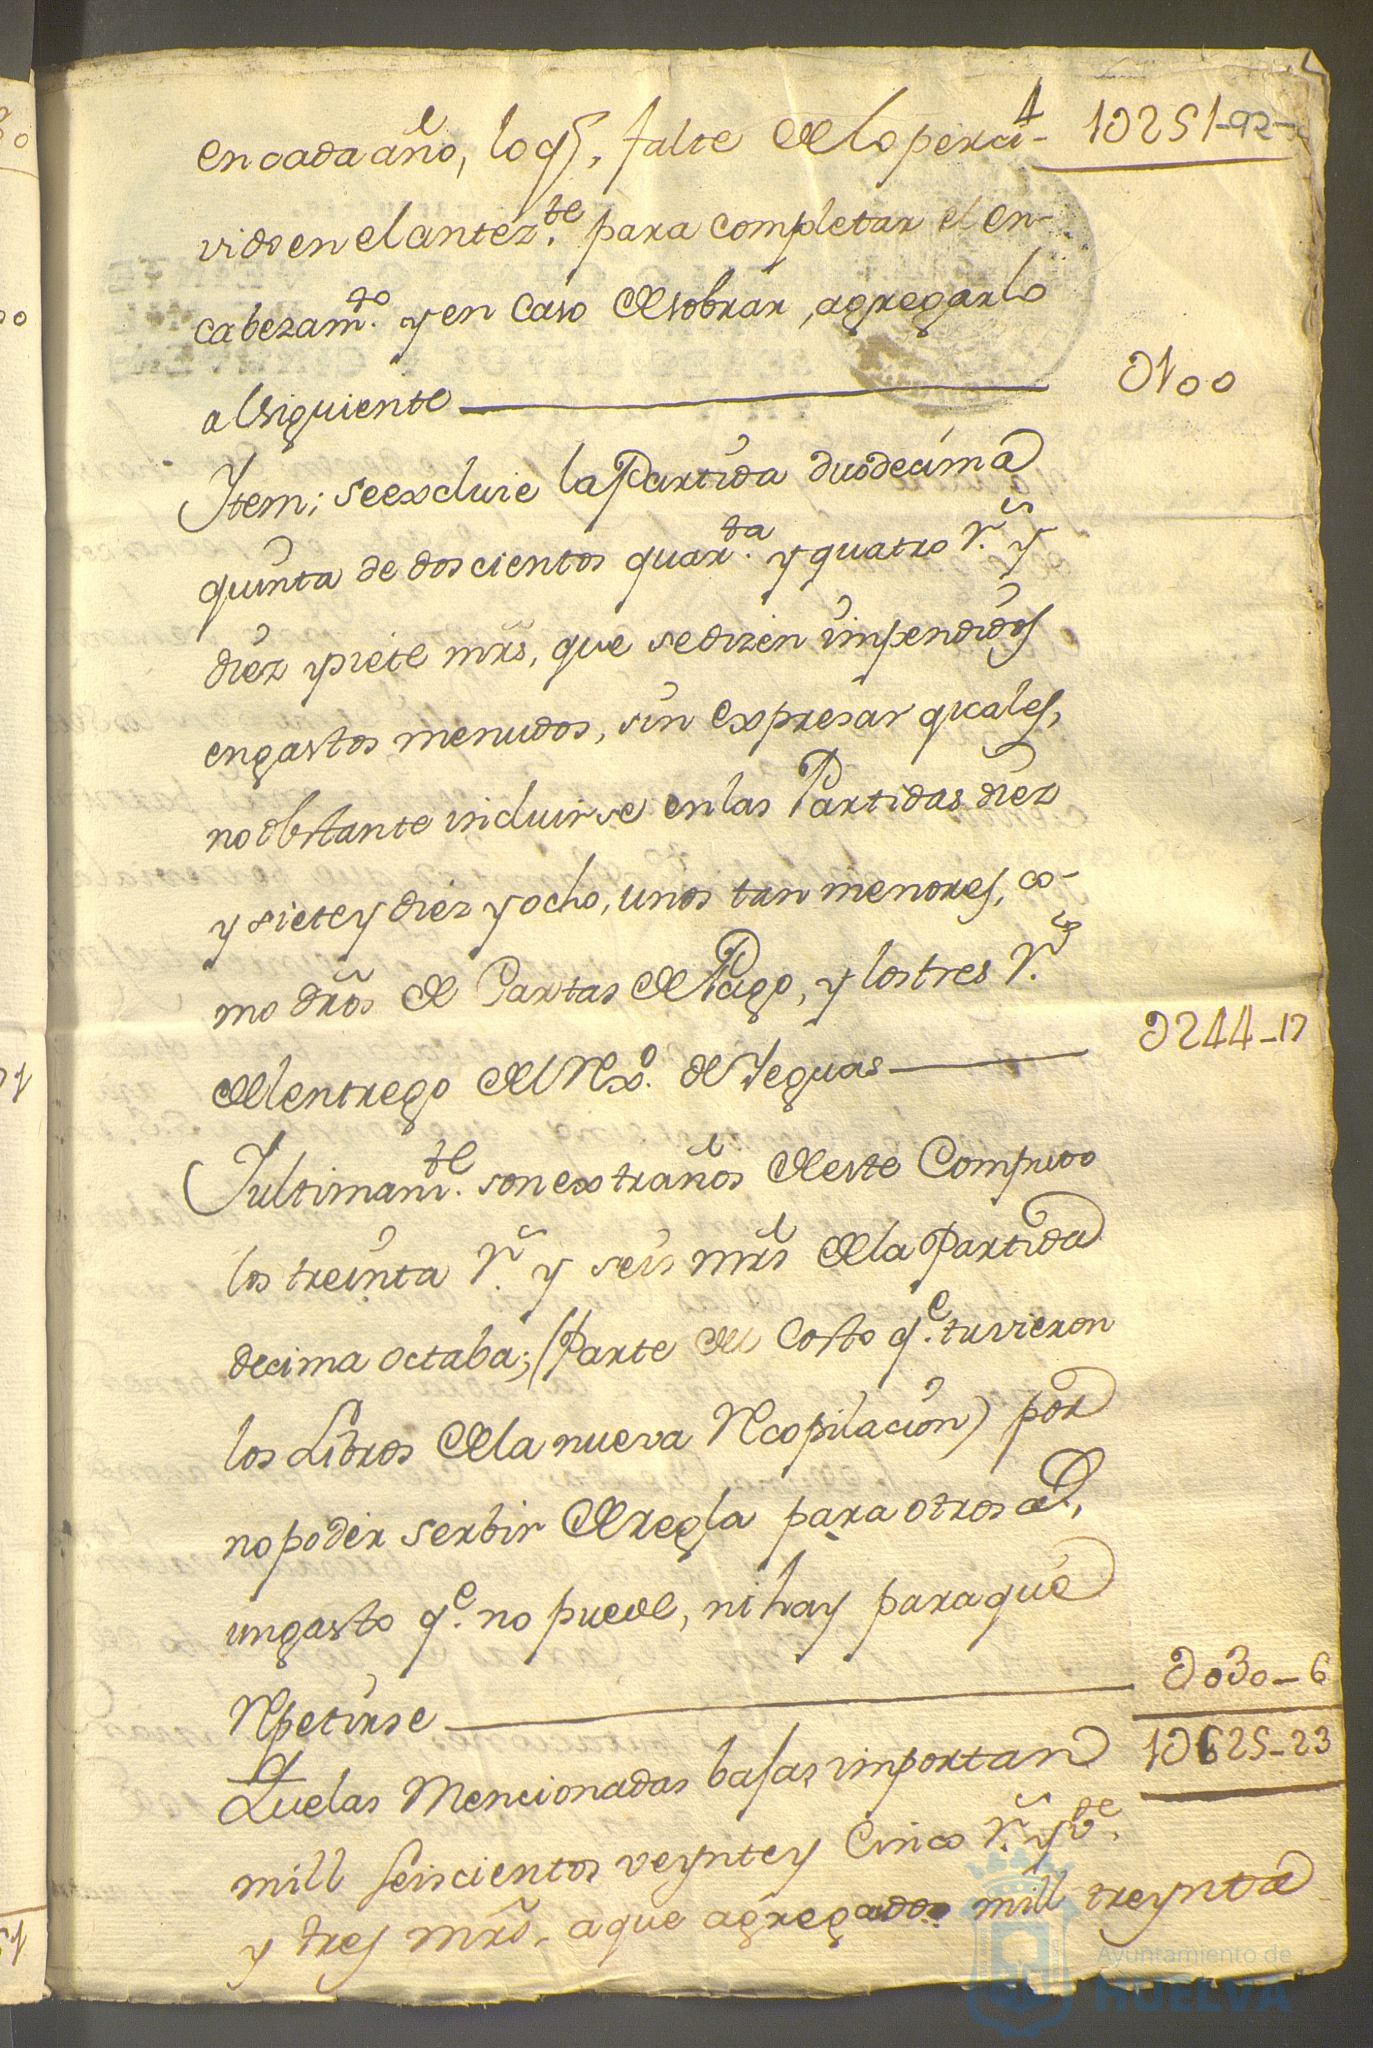 en cada año, lo q.e falte de lo perci- 1U251-92-
vido en el anter.te para completar el en-
cabezam.to y en caso de sobrar, agregarlo
al siguiente U100
Item; se excluie la Partida duodecima
quinta de doscientos quar.ta y quatro r.s y
diez y siete mrs, que se dizen impendidos
en gastos menudos, sin expresar quales,
no obstante incluirse en las Partidas diez
y siete y diez y ocho, unos tan menores, co-
mo dros de Cartas de Pago, y los tres r.s
del entrego del Rx.o de Yeguas U244-17
Yultimam.te son extraños de este Computo
los treinta r.s y seis mrs de la Partida
decima octaba; (Parte del Costo q.e tuvieron
los Libros de la nueva Recopilacion) por
no poder serbir de regla para otros a.s,
un gasto q.e no puede, ni hay para que
Repetirse U030-6
Que las Mencionadas bajas importan 1U625-23
mill seiscientos veynte y Cinco r.s y v.te
y tres mrs, a que agregados mill treynta
Ayuntamiento de
HUELVA